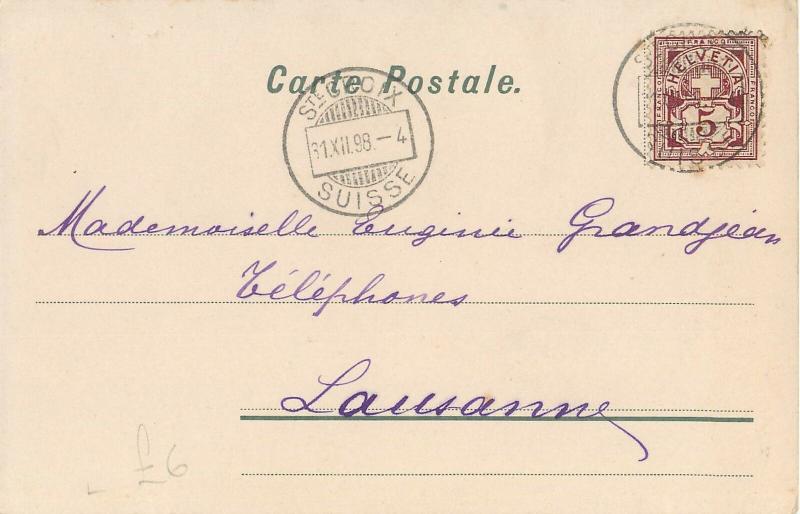 Carte Postale.
STE CROIX
31.XII.98.-4
SUISSE
FRANCO
HELVETIA
FRANCO
FRANCO
5
Mademoiselle Eugénie Grandjean
Téléphones
Lausanne
£6